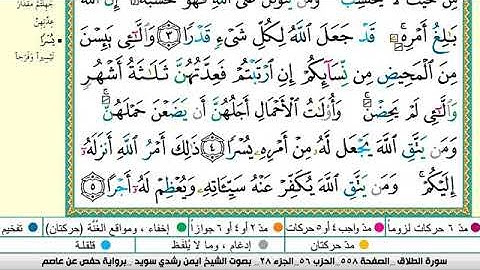 مِنْ حَيْثُ لَا يَحْتَسِبُ وَمَن يَتَوَكَّلْ عَلَى ٱللَّهِ فَهُوَ حَسْبُهُۥٓ إِنَّ ٱللَّهَ
بَٰلِغُ أَمْرِهِۦ قَدْ جَعَلَ ٱللَّهُ لِكُلِّ شَىْءٍ قَدْرًا ٣ وَٱلَّٰٓـِٔى يَئِسْنَ
مِنَ ٱلْمَحِيضِ مِن نِّسَآئِكُمْ إِنِ ٱرْتَبْتُمْ فَعِدَّتُهُنَّ ثَلَٰثَةُ أَشْهُرٍ
وَٱلَّٰٓـِٔى لَمْ يَحِضْنَ وَأُو۟لَٰتُ ٱلْأَحْمَالِ أَجَلُهُنَّ أَن يَضَعْنَ حَمْلَهُنَّ
وَمَن يَتَّقِ ٱللَّهَ يَجْعَل لَّهُۥ مِنْ أَمْرِهِۦ يُسْرًا ٤ ذَٰلِكَ أَمْرُ ٱللَّهِ أَنزَلَهُۥٓ
إِلَيْكُمْ وَمَن يَتَّقِ ٱللَّهَ يُكَفِّرْ عَنْهُ سَيِّـَٔاتِهِۦ وَيُعْظِمْ لَهُۥٓ أَجْرًا ٥
مِقْدَارَ
عِدَّتِهِنَّ
يُسْرًا
تَيْسِيرًا وَفَرَجًا
مدّ ٦ حركات لزوماً مدّ واجب ٤ أو ٥ حركات مدّ ٢ أو ٤ أو ٦ جوازاً إخفاء، ومواقع الغُنَّة (حركتان) تفخيم
مدّ حركتان إدغام، وما لا يُلفَظ قلقلة
سورة الطلاق _ الصفحة ٥٥٨_ الحزب ٥٦_ الجزء ٢٨_ بصوت الشيخ ايمن رشدي سويد _ برواية حفص عن عاصم